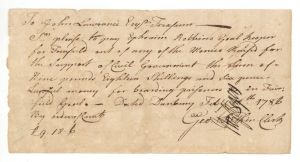 To John Lawrence Esqr Treasurer
Sir please to pay Ephraim Robbins Goal Keeper
for Fairfield out of any of the Monies Raised for
the Support of Civil Government the Sum of
Nine pounds Eighteen Shillings and Six pence
Lawfull money for boarding prisoners in Fair-
field Goal — Dated Danbury Feby 1786
By order of Court
£9 18 6 Clerk